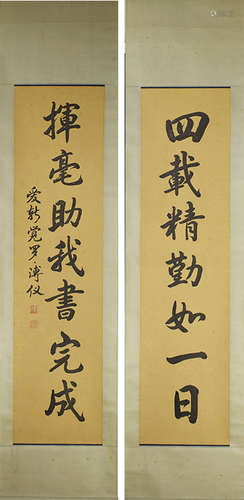 四載精勤如一日
揮毫助我書完成
爱新觉罗·溥仪